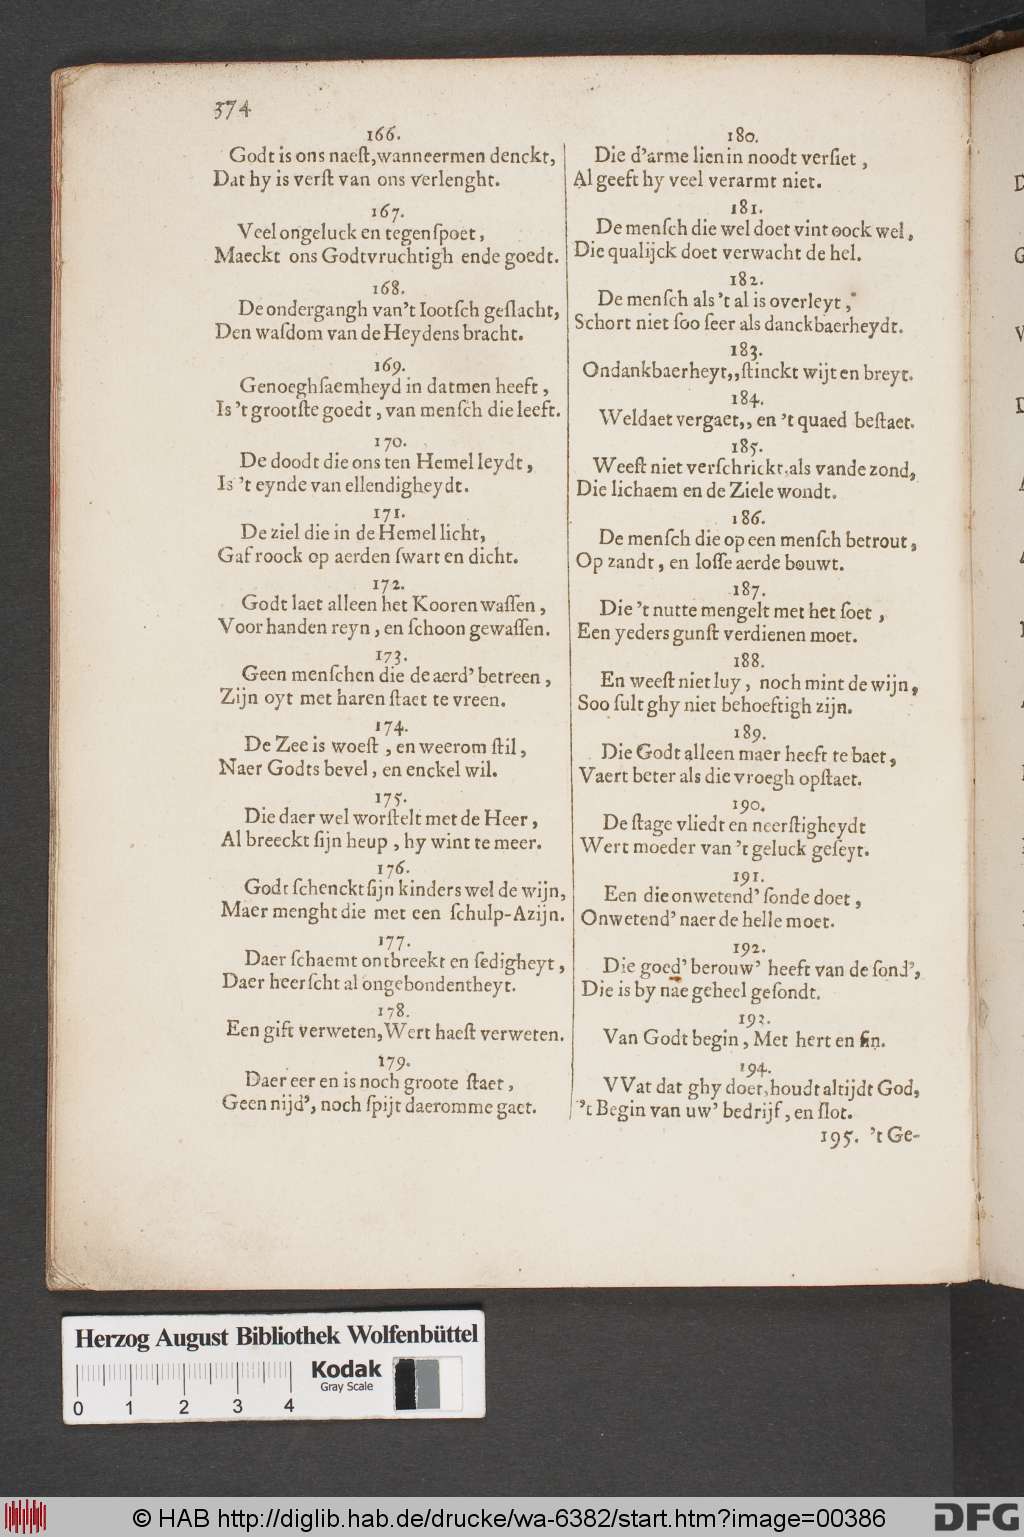 374
166.
Godt is ons naeſt, wanneermen denckt,
Dat hy is verſt van ons verlenght.
167.
Veel ongeluck en tegenſpoet,
Maeckt ons Godtvruchtigh ende goedt.
168.
De ondergangh van't Iootſch geſlacht,
Den waſdom van de Heydens bracht.
169.
Genoeghſaemheyd in datmen heeft,
Is 't grootſte goedt, van menſch die leeft.
170.
De doodt die ons ten Hemel leydt,
Is 't eynde van ellendigheydt.
171.
De ziel die in de Hemel licht,
Gaf roock op aerden ſwart en dicht.
172.
Godt laet alleen het Kooren waſſen,
Voor handen reyn, en ſchoon gewaſſen.
173.
Geen menſchen die de aerd' betreen,
Zijn oyt met haren ſtaet te vreen.
174.
De Zee is woeſt, en weerom ſtil,
Naer Godts bevel, en enckel wil.
175.
Die daer wel worſtelt met de Heer,
Al breeckt ſijn heup, hy wint te meer.
176.
Godt ſchenckt ſijn kinders wel de wijn,
Maer menght die met een ſchulp-Azijn.
177.
Daer ſchaemt ontbreekt en ſedigheyt,
Daer heerſcht al ongebondentheyt.
178.
Een gift verweten, Wert haeſt verweten.
179.
Daer eer en is noch groote ſtaet,
Geen nijd', noch ſpijt daeromme gaet.
180.
Die d'arme lien in noodt verſiet,
Al geeft hy veel verarmt niet.
181.
De menſch die wel doet vint oock wel,
Die qualijck doet verwacht de hel.
182.
De menſch als 't al is overleyt,
Schort niet ſoo ſeer als danckbaerheydt.
183.
Ondankbaerheyt,, ſtinckt wijt en breyt.
184.
Weldaet vergaet,, en 't quaed beſtaet.
185.
Weeſt niet verſchrickt, als vande zond,
Die lichaem en de Ziele wondt.
186.
De menſch die op een menſch betrout,
Op zandt, en loſſe aerde bouwt.
187.
Die 't nutte mengelt met het ſoet,
Een yeders gunſt verdienen moet.
188.
En weeſt niet luy, noch mint de wijn,
Soo ſult ghy niet behoeftigh zijn.
189.
Die Godt alleen maer heeft te baet,
Vaert beter als die vroegh opſtaet.
190.
De ſtage vliedt en neerſtigheydt
Wert moeder van 't geluck geſeyt.
191.
Een die onwetend' ſonde doet,
Onwetend' naer de helle moet.
192.
Die goed' berouw' heeft van de ſond',
Die is by nae geheel geſondt.
193.
Van Godt begin, Met hert en ſin.
194.
VVat dat ghy doet, houdt altijdt God,
't Begin van uw' bedrijf, en ſlot.
195. 't Ge-
Herzog August Bibliothek Wolfenbüttel
Kodak
Gray Scale
0 1 2 3 4
© HAB http://diglib.hab.de/drucke/wa-6382/start.htm?image=00386
DFG